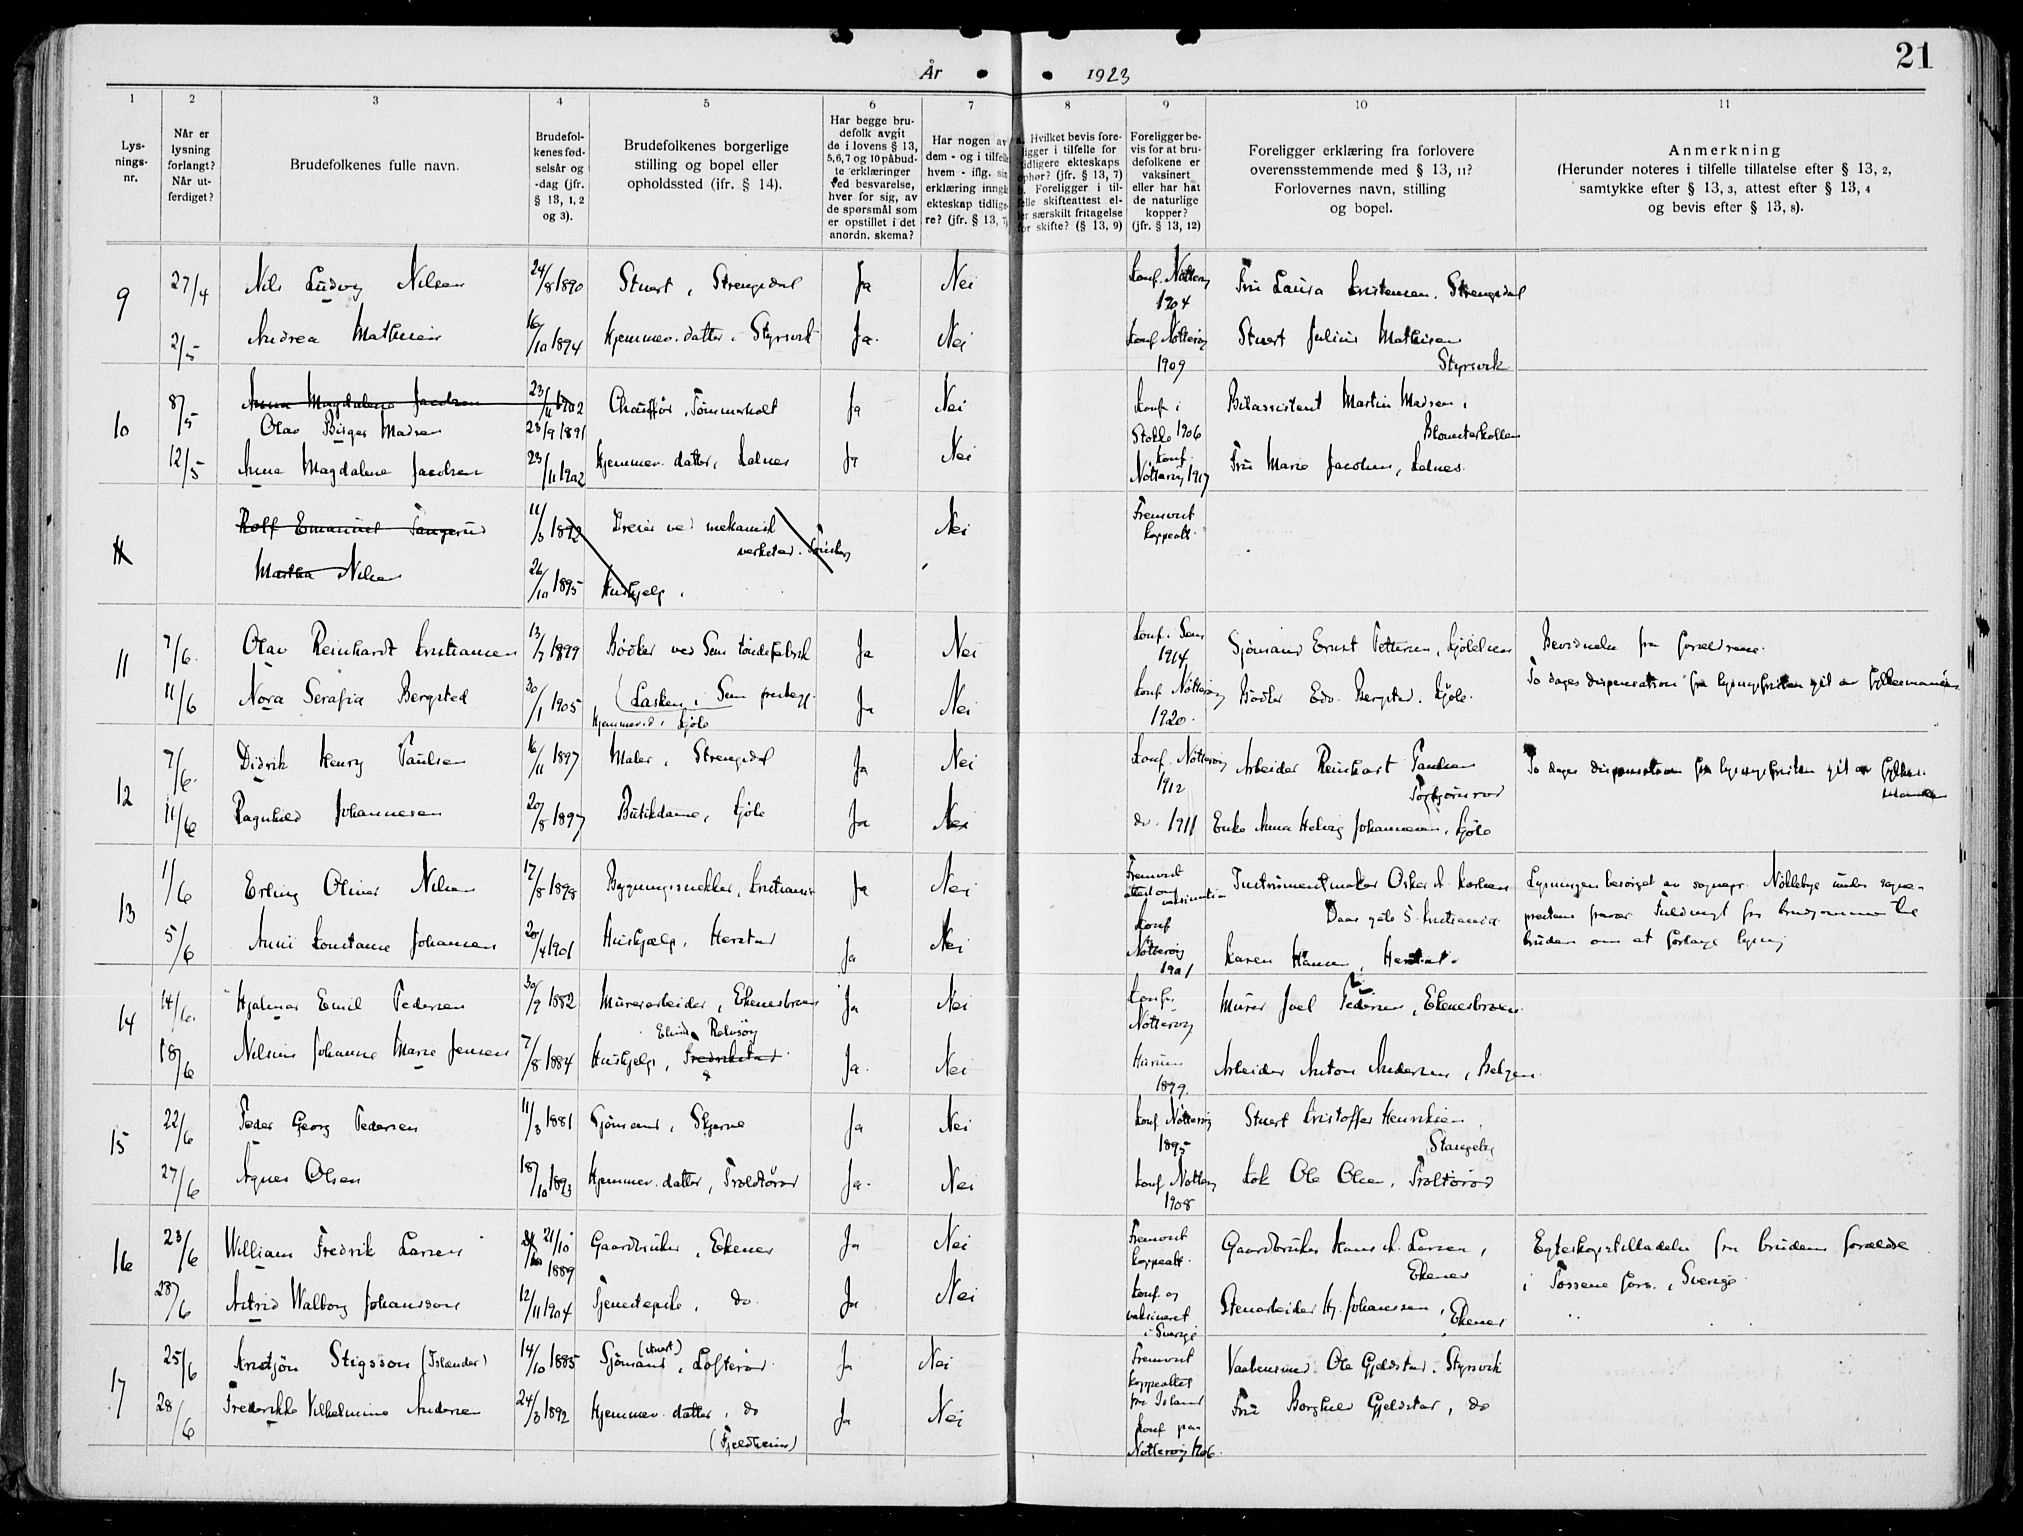 21
År 1923
1 2 3 4 5 6 7 8 9 10 11
Lys-
nings-
nr.
Når er
lysning
forlangt?
Når ut-
ferdiget?
Brudefolkenes fulle navn.
Brudefol-
kenes fød-
selsår og
-dag (jfr.
§ 13, 1, 2
og 3).
Brudefolkenes borgerlige
stilling og bopel eller
opholdssted (ifr. § 14).
Har begge bru-
defolk avgit
de i lovens § 13,
5,6,7 og 10 påbud-
te erklæringer
ved besvarelse,
hver for sig, av
de spørsmål som
er opstillet i det
anordn. skema?
Har nogen av
dem - og i tilfelle
hvem - iflg. sin
erklæring inngå
ekteskap tidlige-
re? (jfr. § 13, 7
a. Hvilket bevis fore-
ligger i tilfelle for
tidligere ekteskaps
ophør? (jfr. § 13, 7)
b. Foreligger i til-
felle skifteattest el-
ler særskilt fritagelse
for skifte? (§ 13, 9)
Foreligger be-
vis for at bru-
defolkene er
vaksinert
eller har hat
de naturlige
kopper?
(jfr. § 13, 12)
Foreligger erklæring fra forlovere
overensstemmende med § 13, 11?
Forlovernes navn, stilling
og bopel.
Anmerkning
(Herunder noteres i tilfelle tillatelse efter § 13, 2,
samtykke efter § 13, 3, attest efter § 13, 4
og bevis efter § 13, 8).
9 27/4 Nils Ludvig Nilsen 24/8 1890 Stuert, Strengsdal Ja Nei Konf. Nøtterøy 1904 Fru Laura Kristensen. Strengsdal
2/5 Andrea Mathisen 16/10 1894 Hjemmev. datter. Styrsvik Ja. Nei Konf Nøtterøy 1909 Stuert Julius Mathisen
Styrsvik
10 8/5 Anna Magdalene Jacobsen 23/11 1902 Chauffør, Tømmerholt Ja Nei Konf i Stokke 1906 Bilassistent Martin Madsen,
Olav Birger Madsen 23/9 1891
12/5 Anna Magdalene Jacobsen 23/11 1902 Hjemmev. datter, Ja Nei Konf. Nøtterøy 1917 Fru Marie Jacobsen,
11 Rolf Emanuel 11/3 1892 Dreier ved mekanisk
verksted. Tønsberg Nei Fremvist
koppeatt.
Martha Nilsen 26/10 1895 Hushjelp.
11 7/6. Olav Reinhardt Kristiansen 13/7 1899 Bødker ved Sem tøndefabrik Ja Nei Konf. i Sem 1914 Sjømand Ernst Pettersen, Bevidnelse fra forældrene.
11/6 Nora Serafia Bergsted 30/1 1905 Sem
Hjemmev. d. Kjøle Ja Nei Konf Nøtterøy 1920. Bødker Edv. Bergsted. Kjøle. To dages dispensation fra lysningsfristen git av fylkesmanden
12 7/6. Didrik Henry Paulsen 16/11 1897 Maler, Strengsdal Ja Nei Konf. Nøtterøy 1912 Arbeider Reinhart Paulsen
To dages dispensation fra lysningsfristen git av fylkes-
manden
11/6 Ragnhild Johannesen 20/8 1897 Butikdame, Kjøle Ja Nei do. 1911 Enke Anna Helvig Johannesen. Kjøle
13 1/6 Erling Oliver Nilsen 17/8 1898 Bygningssnekker, Kristiania Ja Nei Fremvist attest om vaksination Instrumentmaker Oskar A. Karlsen
Daas gate 5. Kristiania
Lysningen besørget av sognepr. Nøklebye under sogne-
prestens fravær. Fuldmagt fra brudgommen til
bruden om at forlange lysning
5/6 Anni Konstanse Johansen 20/4 1901 Hushjælp, Herstad Ja Nei Konf Nøtterøy Karen Hansen,
14 14/6. Hjalmar Emil Pedersen 30/9 1882 Murerarbeider, Ekenesbraaten Ja Nei Konf. Nøtterøy Murer Joel Pedersen, Ekenesbraaten
18/6 Nilsine Johanne Marie Jensen 7/8 1884 Hushjelp, Fredrikstad Ja. Nei Hurum 1899. Arbeider Anton Andersen,
15 22/6 Peder Georg Pedersen 11/3 1881 Sjømand, Skjerve Ja Nei Konf Nøtterøy 1895 Stuert Kristoffer Henriksen,
Stangeby
27/6 Agnes Olsen 18/10 1893 Hjemmev. datter, Ja. Nei Konf Nøtterøy 1908 Kok Ole Olsen,
16 23/6 William Fredrik Larsen 21/10 1889 Gaardbruker, Ekenes Ja Nei Fremvist koppeatt. Gaardbruker Hans A. Larsen,
Ekenes
Egteskapstilladelse fra brudens forældre
i Tossene fors., Sverige
28/6 Astrid Walborg Johansson 12/11 1904 Tjenestepike, do. Ja Nei Konf og
vaksineret
i Sverige Stenarbeider Hj. Johanssen,
Ekenes
17 25/6 Stigsson (Islænder) 14/10 1885 Sjømand (stuert), Ja Nei Fremvist
koppeattest
fra Island Ole Gjeldstad. Styrsvik
28/6 Frederikke Vilhelmine Andersen 24/3 1892 Hjemmev. datter, do
(Fjeldheim) Ja Nei Konf paa
Nøtterøy 1906. Fru Borghild Gjeldstad, do